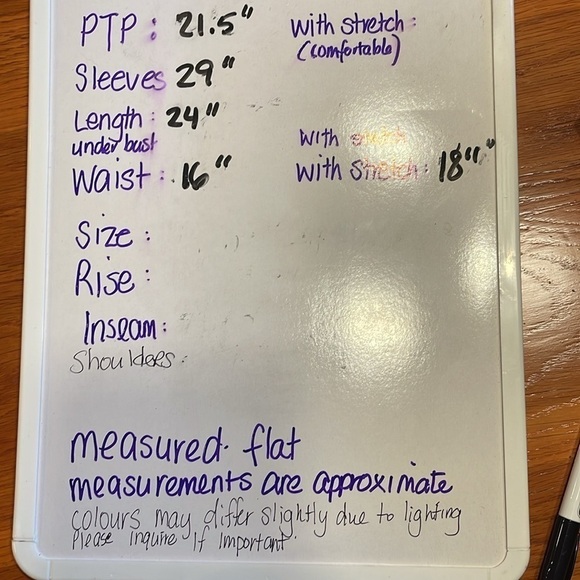 PTP : 21.5"
with stretch :
(comfortable)
Sleeves 29"
Length : 24"
under bust
with
Waist : 16"
with stretch : 18"
Size :
Rise :
Inseam :
Shoulders :
measured flat
measurements are approximate
colours may differ slightly due to lighting
Please inquire if important